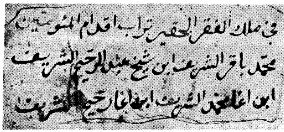 في ملك الفقير الحقير تراب اقدام المؤمنين
محمد باقر الشريف ابن شيخ عبد الرحيم الشريف
ابن اغا محمد الشريف ابن اغا رحيم الشريف